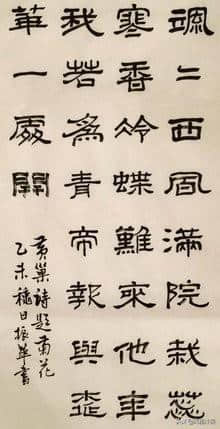 颯二西風滿院栽蕊
寒香冷蝶難來他年
我若為青帝報與桃
華一處開
黃巢詩題菊花
乙未穐日振華書